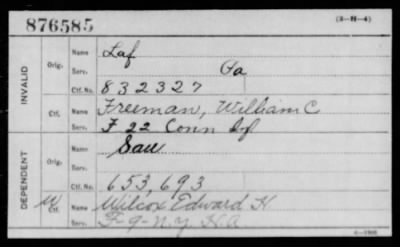 876585 (3-H-4)
INVALID
Orig. Name Laf
Serv. Pa
Ctf. No. 832327
Ctf. Name Freeman, William C
Serv. F 22 Conn Inf
DEPENDENT
Orig. Name Sau
Serv.
Ctf. No. 653,693
W Ctf. Name Wilcox Edward H.
F-9-N.Y. H.A.